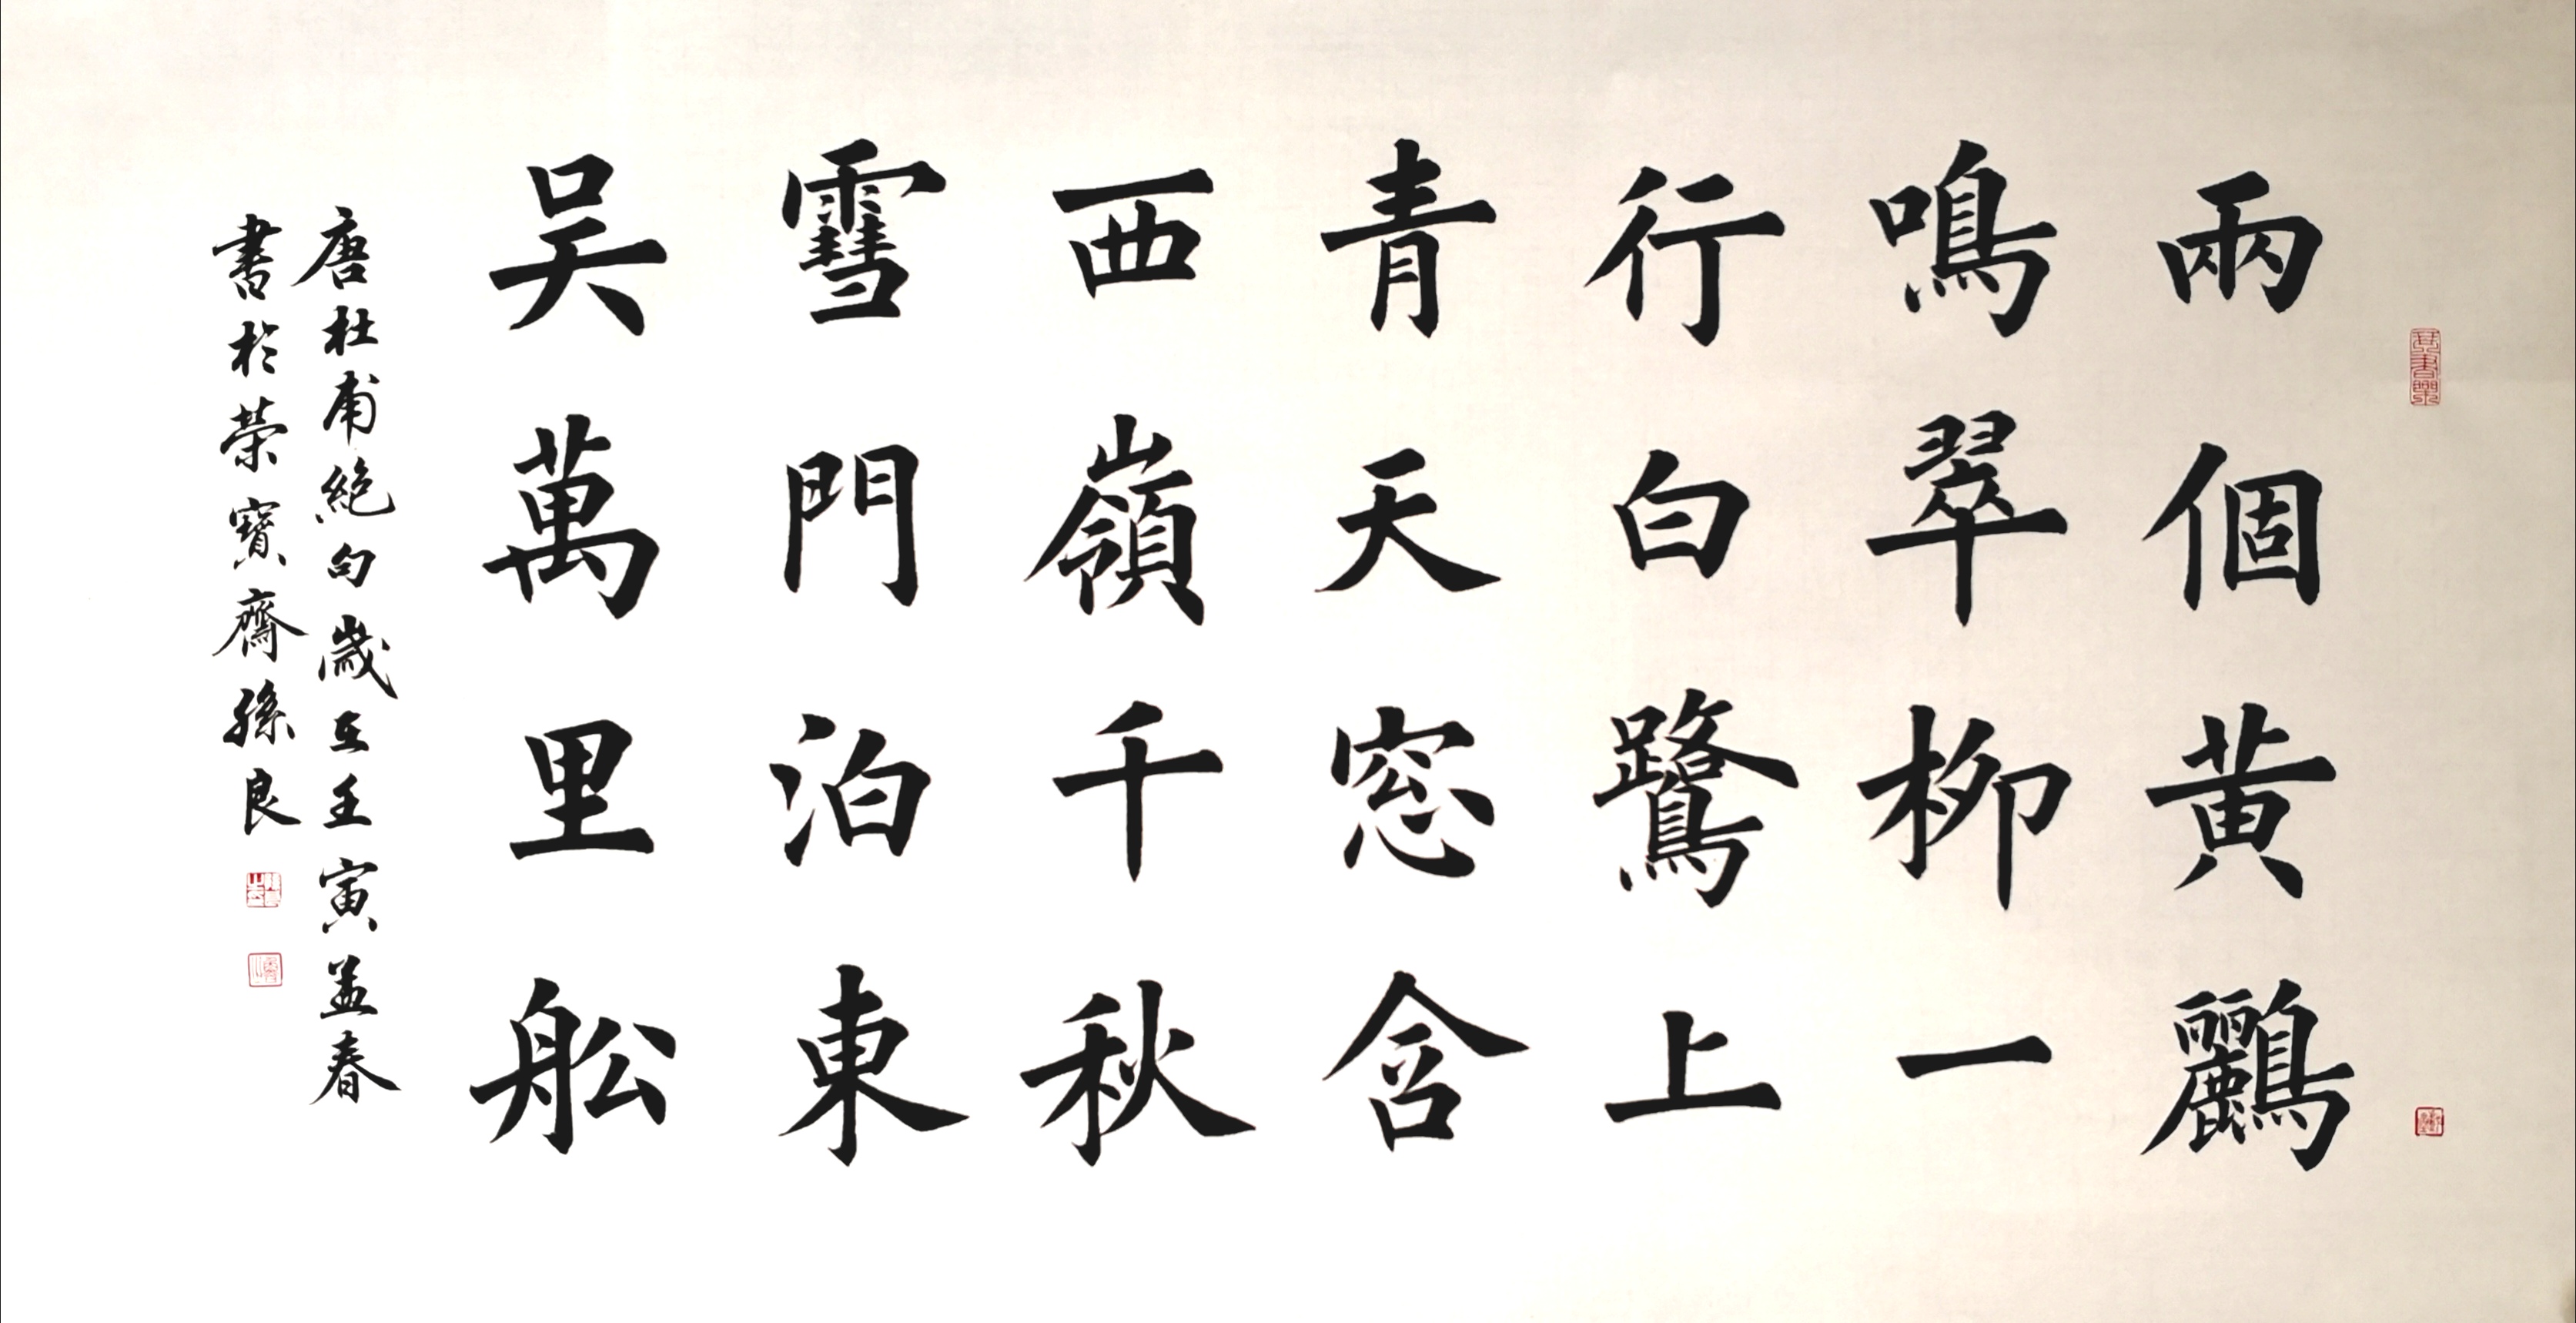 兩個黃鸝
鳴翠柳一
行白鷺上
青天窓含
西嶺千秋
雪門泊東
吴萬里舩
唐杜甫絕句歲在壬寅孟春
書於榮寶齋孫良